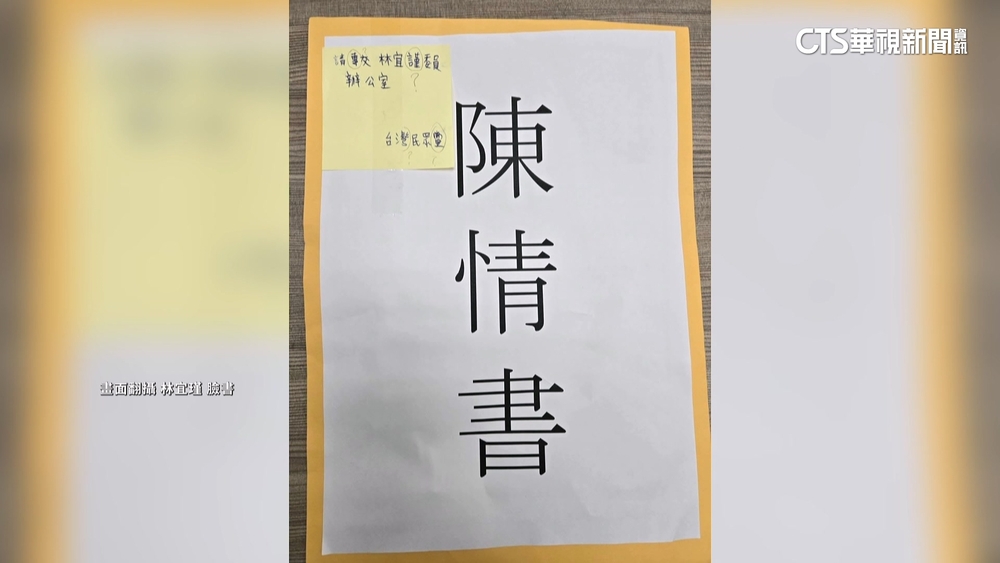 CTS華視新聞資訊
請專交 林宜謹委員
辦公室 ?
台灣民眾黨
? ?
陳情書
畫面翻攝 林宜瑾 臉書